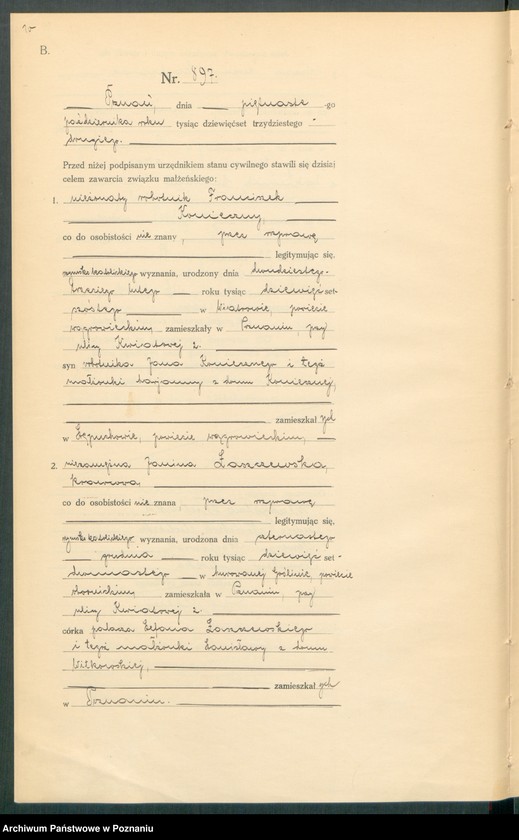 B.
Nr. 897.
Poznań, dnia piętnaste -go
października roku tysiąc dziewięćset trzydziestego
drugiego.
Przed niżej podpisanym urzędnikiem stanu cywilnego stawili się dzisiaj
celem zawarcia związku małżeńskiego:
1. nieżonaty robotnik Franciszek
Konieczny,
co do osobistości nie znany, przez rozprawę
legitymując się,
rzymsko katolickiego wyznania, urodzony dnia dwudziestego-
trzeciego lutego roku tysiąc dziewięć set-
szóstego w powiecie
wągrowieckim zamieszkały w Poznaniu, przy
ulicy Kwiatowej 2.
syn robotnika Jana Koniecznego i tegoż
małżonki Marjanny z domu Koniecznej,
zamieszkał ych
w Łępuchowie, powiecie wągrowieckim,
2. niezamężna Janina Łaszczewska,
krawcowa,
co do osobistości nie znana, przez rozprawę
legitymując się,
rzymsko katolickiego wyznania, urodzona dnia czternastego
grudnia roku tysiąc dziewięć set-
dwunastego w Murowanej Goślinie, powiecie
obornickim zamieszkała w Poznaniu, przy
ulicy Kwiatowej 2.
córka palacza Stefana Łaszczewskiego
i tegoż małżonki Stanisławy z domu
Wilkowskiej,
zamieszkał ych
w Poznaniu.
Archiwum Państwowe w Poznaniu